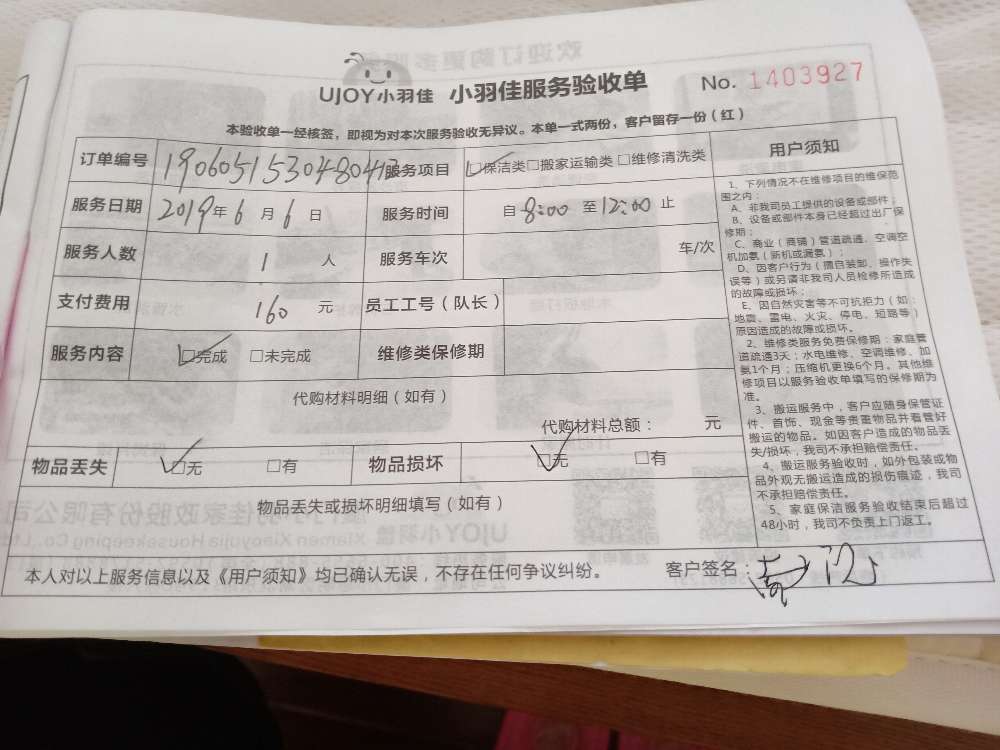 UJOY小羽佳 小羽佳服务验收单 No. 1403927
本验收单一经核签，即视为对本次服务验收无异议。本单一式两份，客户留存一份（红）
订单编号 服务项目 ☑保洁类□搬家运输类□维修清洗类
服务日期 2019年6月6日 服务时间 自8:00至12:00止
服务人数 1人 服务车次 车/次
支付费用 160元 员工工号（队长）
服务内容 ☑完成 □未完成 维修类保修期
代购材料明细（如有）
代购材料总额： 元
物品丢失 ☑无 □有 物品损坏 ☑无 □有
物品丢失或损坏明细填写（如有）
本人对以上服务信息以及《用户须知》均已确认无误，不存在任何争议纠纷。 客户签名：
用户须知
1、下列情况不在维修项目的维保范
围之内：
A、非我司员工提供的设备或部件；
B、设备或部件本身已经超过出厂保
修期；
C、商业（商铺）管道疏通、空调空
机加氨（新机或漏氨）；
D、因客户行为（擅自装卸、操作失
误等）或另请非我司人员检修所造成
的故障或损坏；
E、因自然灾害等不可抗拒力（如：
地震、雷电、火灾、停电、短路等）
原因造成的故障或损坏。
2、维修类服务免费保修期：家庭管
道疏通3天；水电维修、空调维修、加
氨1个月；压缩机更换6个月。其他维
修项目以服务验收单填写的保修期为
准。
3、搬运服务中，客户应随身保管证
件、首饰、现金等贵重物品并看管好
搬运的物品。如因客户造成的物品丢
失/损坏，我司不承担赔偿责任。
4、搬运服务验收时，如外包装或物
品外观无搬运造成的损伤痕迹，我司
不承担赔偿责任。
5、家庭保洁服务验收结束后超过
48小时，我司不负责上门返工。